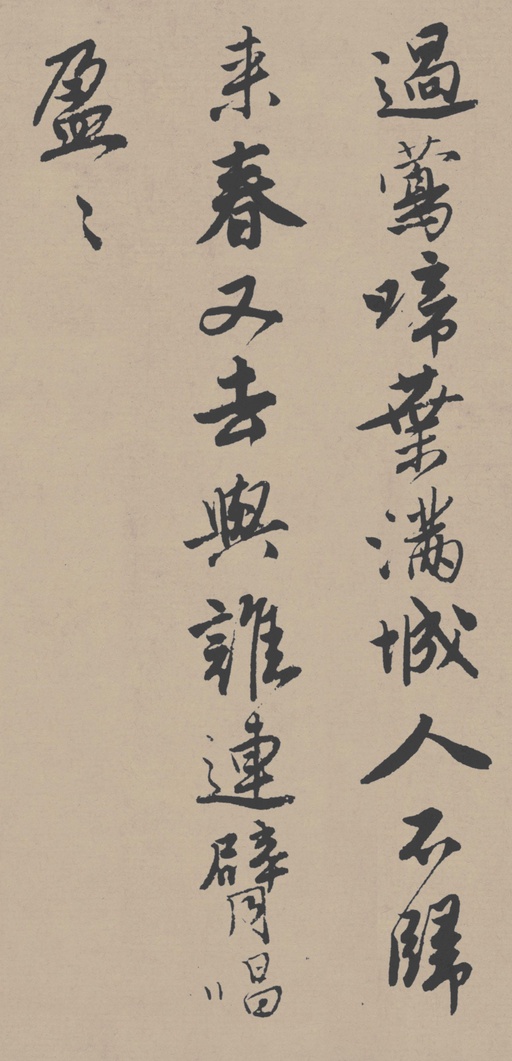 過鶯啼葉滿城人不歸
来春又去與誰連臂唱
盈〻